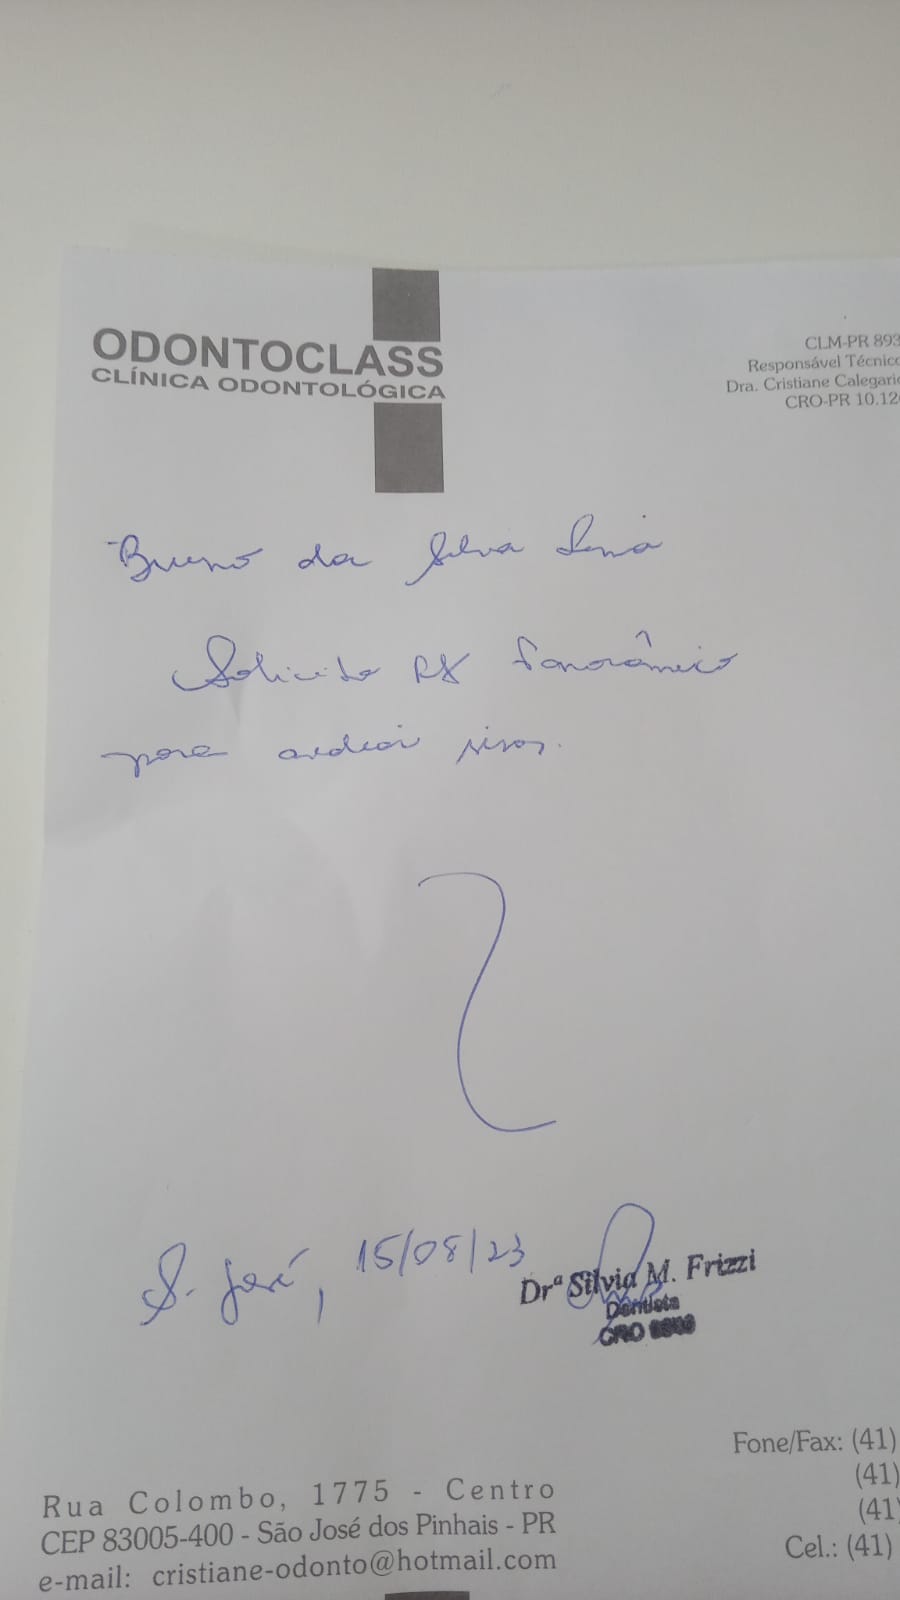 ODONTOCLASS
CLÍNICA ODONTOLÓGICA
CLM-PR 893
Responsável Técnico
Dra. Cristiane Calegari
CRO-PR 10.12
Bruno da Silva
Solicito RX Panorâmico
para avaliar sisos.
S. José, 15/08/23
Drª Silvia M. Frizzi
Dentista
CRO
Fone/Fax: (41)
(41)
(41)
Cel.: (41)
Rua Colombo, 1775 - Centro
CEP 83005-400 - São José dos Pinhais - PR
e-mail: cristiane-odonto@hotmail.com